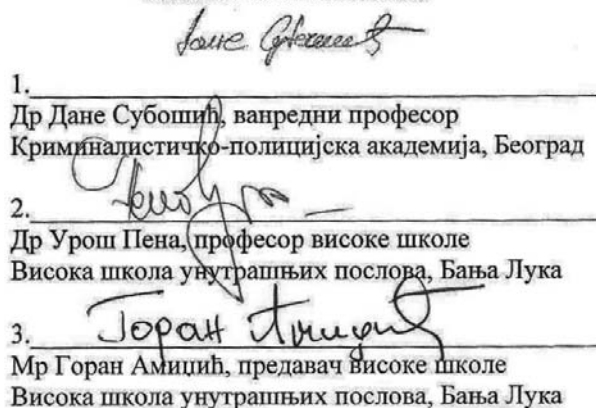 1.
Др Дане Субошић, ванредни професор
Криминалистичко-полицијска академија, Београд
2.
Др Урош Пена, професор високе школе
Висока школа унутрашњих послова, Бања Лука
Горан Амиџић
3.
Мр Горан Амиџић, предавач високе школе
Висока школа унутрашњих послова, Бања Лука